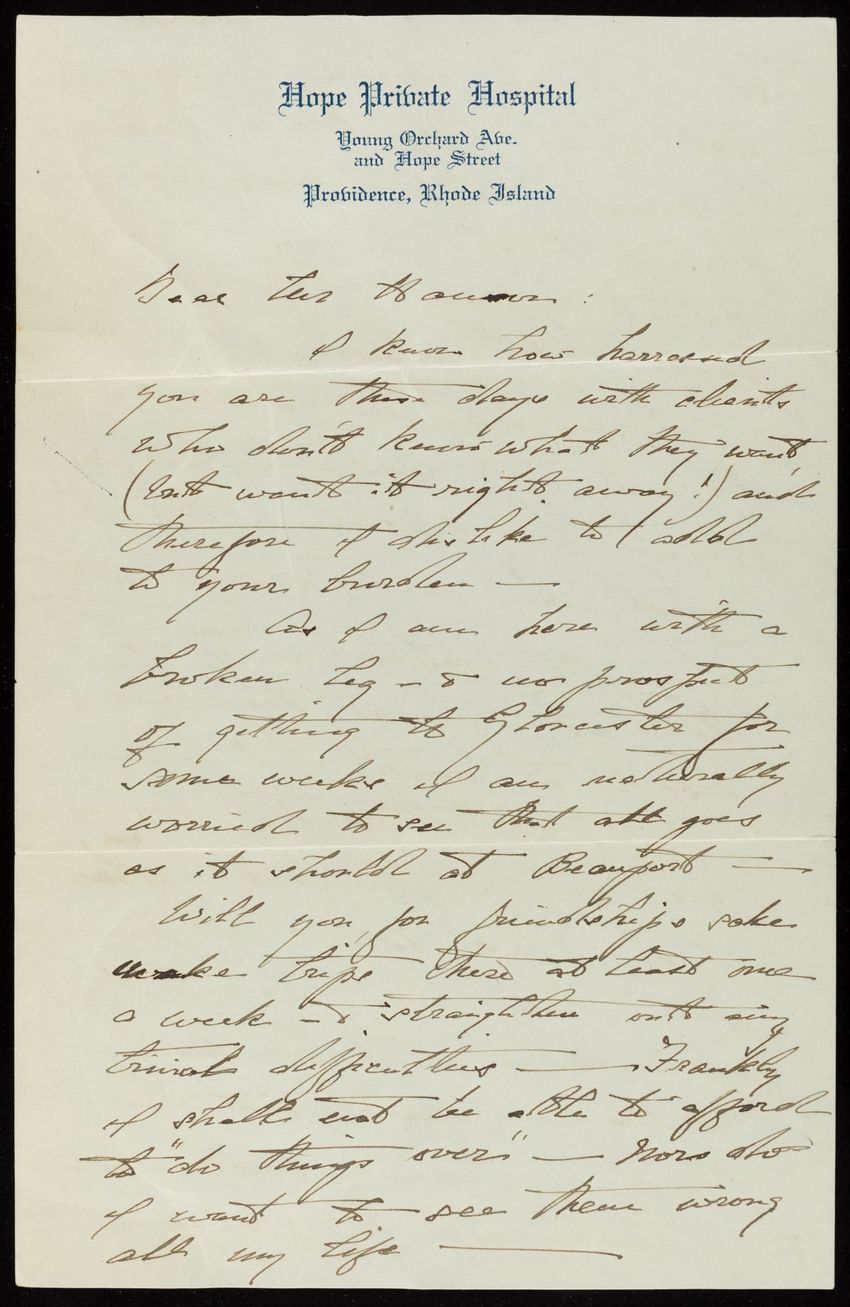 Hope Private Hospital
Young Orchard Ave.
and Hope Street
Providence, Rhode Island
Dear
I know how harrassed
you are these days with clients
who don't know what they want,
(but want it right away!) and
therefore I dislike to add
to your burden —
As I am here with a
broken leg - & no prospect
of getting to Gloucester for
some weeks I am naturally
worried to see that all goes
as it should at Beauport —
Will you, for friendships sake
make trips there at least once
a week - & straighten out any
trivial difficulties — Frankly
I shall not be able to afford
to "do things over" — Nor do
I want to see them wrong
all my life —